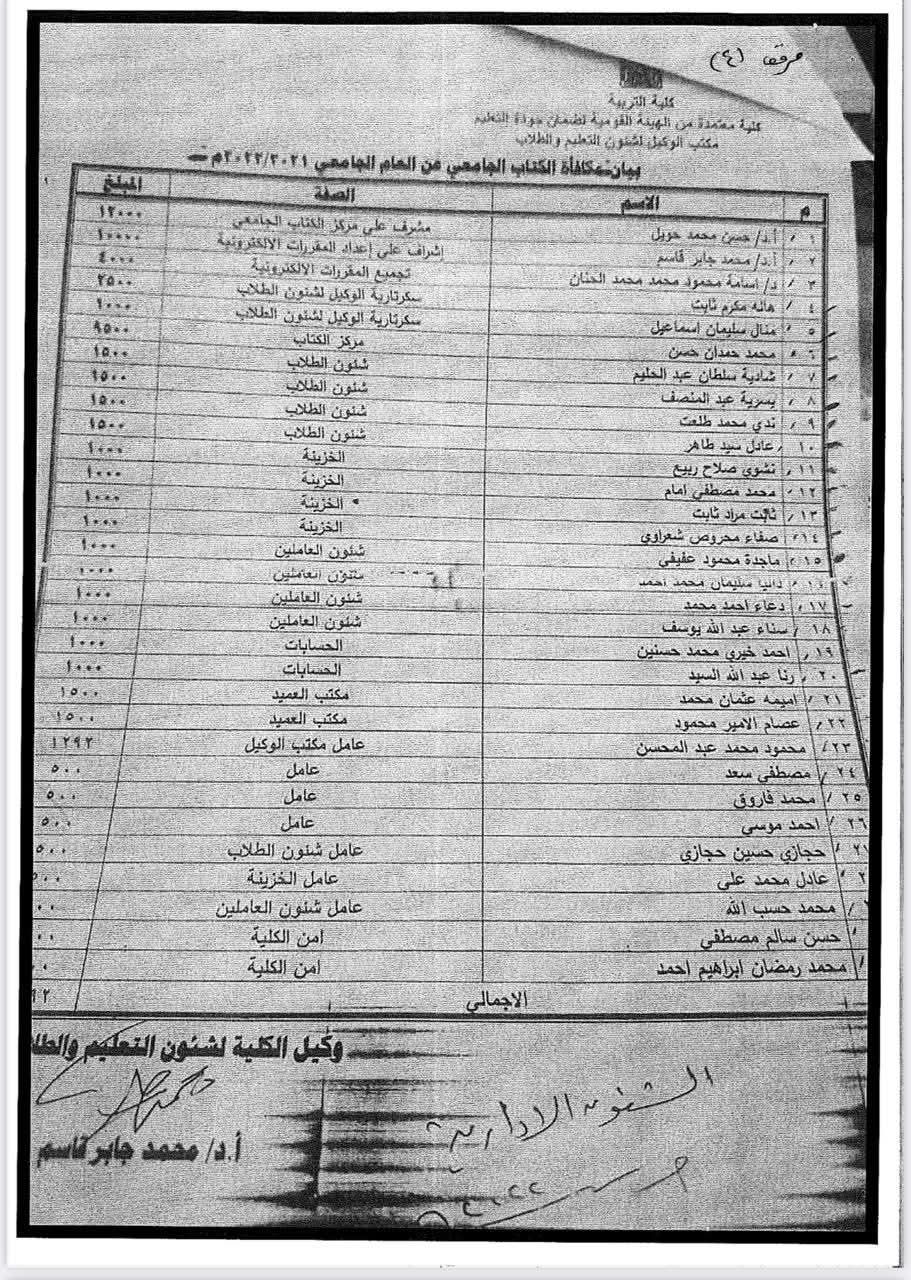 مرفق (٤)
كلية التربية
كلية معتمدة من الهيئة القومية لضمان جودة التعليم
مكتب الوكيل لشئون التعليم والطلاب
بيان مكافأة الكتاب الجامعي عن العام الجامعي ٢٠٢٢/٢٠٢١م
م الاسم الصفة المبلغ
١ أ.د/ حسن محمد حويل مشرف على مركز الكتاب الجامعي ١٢٠٠٠
٢ أ.د/ محمد جابر قاسم إشراف على إعداد المقررات الالكترونية ١٠٠٠٠
٣ د/ اسامة محمود محمد محمد الحنان تجميع المقررات الالكترونية ٤٠٠٠
٤ هاله مكرم ثابت سكرتارية الوكيل لشئون الطلاب ٢٥٠٠
٥ منال سليمان اسماعيل سكرتارية الوكيل لشئون الطلاب ١٠٠٠
٦ محمد حمدان حسن مركز الكتاب ٩٥٠٠
٧ شادية سلطان عبد الحليم شئون الطلاب ١٥٠٠
٨ يسرية عبد المنصف شئون الطلاب ١٥٠٠
٩ ندي محمد طلعت شئون الطلاب ١٥٠٠
١٠ عادل سيد طاهر شئون الطلاب ١٥٠٠
١١ نشوي صلاح ربيع الخزينة ١٠٠٠
١٢ محمد مصطفي امام الخزينة ١٠٠٠
١٣ ثالث مراد ثابت الخزينة ١٠٠٠
١٤ صفاء محروص شعراوي الخزينة ١٠٠٠
١٥ ماجدة محمود عفيفي شئون العاملين ١٠٠٠
١٦ دانيا سليمان محمد احمد شئون العاملين ١٠٠٠
١٧ دعاء احمد محمد شئون العاملين ١٠٠٠
١٨ سناء عبد الله يوسف شئون العاملين ١٠٠٠
١٩ احمد خيري محمد حسنين الحسابات ١٠٠٠
٢٠ رنا عبد الله السيد الحسابات ١٠٠٠
٢١ اميمه عثمان محمد مكتب العميد ١٥٠٠
٢٢ عصام الامير محمود مكتب العميد ١٥٠٠
٢٣ محمود محمد عبد المحسن عامل مكتب الوكيل ١٢٩٢
٢٤ مصطفي سعد عامل ٥٠٠
٢٥ محمد فاروق عامل ٥٠٠
٢٦ احمد موسى عامل ٥٠٠
حجازي حسين حجازي عامل شئون الطلاب ٥٠٠
عادل محمد على عامل الخزينة
محمد حسب الله عامل شئون العاملين
حسن سالم مصطفي امن الكلية
محمد رمضان ابراهيم احمد امن الكلية
الاجمالي
وكيل الكلية لشئون التعليم والطلا
الشئون الادارية
أ.د/ محمد جابر قاسم